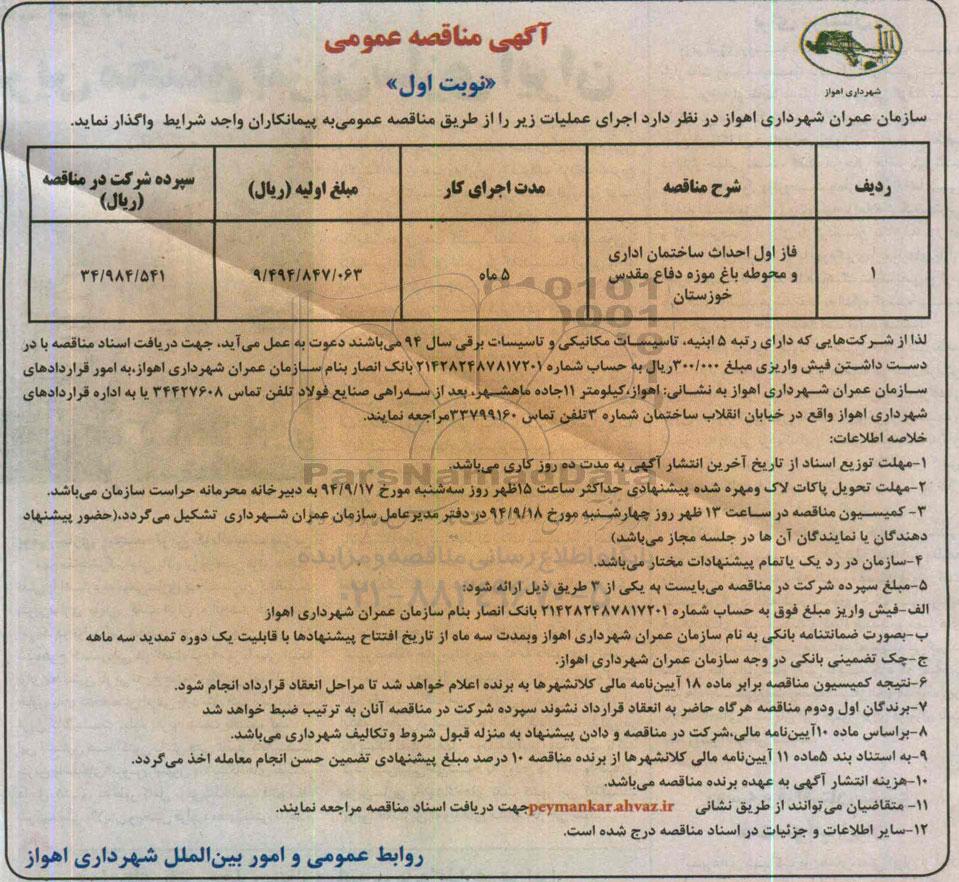 شهرداری اهواز
آگهی مناقصه عمومی
«نوبت اول»
سازمان عمران شهرداری اهواز در نظر دارد اجرای عملیات زیر را از طریق مناقصه عمومی‌به پیمانکاران واجد شرایط واگذار نماید.
ردیف شرح مناقصه مدت اجرای کار مبلغ اولیه (ریال) سپرده شرکت در مناقصه (ریال)
۱ فاز اول احداث ساختمان اداری و محوطه باغ موزه دفاع مقدس خوزستان ۵ ماه ۹/۴۹۴/۸۴۷/۰۶۳ ۳۴/۹۸۴/۵۴۱
لذا از شرکت‌هایی که دارای رتبه ۵ ابنیه، تاسیسات مکانیکی و تاسیسات برقی سال ۹۴ می‌باشند دعوت به عمل می‌آید، جهت دریافت اسناد مناقصه با در
دست داشتن فیش واریزی مبلغ ۳۰۰/۰۰۰ریال به حساب شماره ۲۱۴۲۸۲۴۸۷۸۱۷۲۰۱ بانک انصار بنام سازمان عمران شهرداری اهواز،به امور قراردادهای
سازمان عمران شهرداری اهواز به نشانی: اهواز،کیلومتر ۱۱جاده ماهشهر، بعد از سه‌راهی صنایع فولاد تلفن تماس ۳۴۴۲۷۶۰۸ یا به اداره قراردادهای
شهرداری اهواز واقع در خیابان انقلاب ساختمان شماره ۳تلفن تماس ۳۳۷۹۹۱۶۰مراجعه نمایند.
خلاصه اطلاعات:
۱-مهلت توزیع اسناد از تاریخ آخرین انتشار آگهی به مدت ده روز کاری می‌باشد.
۲-مهلت تحویل پاکات لاک ومهره شده پیشنهادی حداکثر ساعت ۱۵ظهر روز سه‌شنبه مورخ ۹۴/۹/۱۷ به دبیرخانه محرمانه حراست سازمان می‌باشد.
۳- کمیسیون مناقصه در ساعت ۱۳ ظهر روز چهارشنبه مورخ ۹۴/۹/۱۸ در دفتر مدیرعامل سازمان عمران شهرداری تشکیل می‌گردد.(حضور پیشنهاد
دهندگان یا نمایندگان آن ها در جلسه مجاز می‌باشد)
۴-سازمان در رد یک یاتمام پیشنهادات مختار می‌باشد.
۵-مبلغ سپرده شرکت در مناقصه می‌بایست به یکی از ۳ طریق ذیل ارائه شود:
الف-فیش واریز مبلغ فوق به حساب شماره ۲۱۴۲۸۲۴۸۷۸۱۷۲۰۱ بانک انصار بنام سازمان عمران شهرداری اهواز
ب-بصورت ضمانتنامه بانکی به نام سازمان عمران شهرداری اهواز وبمدت سه ماه از تاریخ افتتاح پیشنهادها با قابلیت یک دوره تمدید سه ماهه
ج-چک تضمینی بانکی در وجه سازمان عمران شهرداری اهواز.
۶-نتیجه کمیسیون مناقصه برابر ماده ۱۸ آیین‌نامه مالی کلانشهرها به برنده اعلام خواهد شد تا مراحل انعقاد قرارداد انجام شود.
۷-برندگان اول ودوم مناقصه هرگاه حاضر به انعقاد قرارداد نشوند سپرده شرکت در مناقصه آنان به ترتیب ضبط خواهد شد
۸-براساس ماده ۱۰آیین‌نامه مالی،شرکت در مناقصه و دادن پیشنهاد به منزله قبول شروط وتکالیف شهرداری می‌باشد.
۹-به استناد بند ۵ماده ۱۱ آیین‌نامه مالی کلانشهرها از برنده مناقصه ۱۰ درصد مبلغ پیشنهادی تضمین حسن انجام معامله اخذ می‌گردد.
۱۰-هزینه انتشار آگهی به عهده برنده مناقصه می‌باشد.
۱۱- متقاضیان می‌توانند از طریق نشانی peymankar.ahvaz.irجهت دریافت اسناد مناقصه مراجعه نمایند.
۱۲-سایر اطلاعات و جزئیات در اسناد مناقصه درج شده است.
روابط عمومی و امور بین‌الملل شهرداری اهواز
ParsNamadData